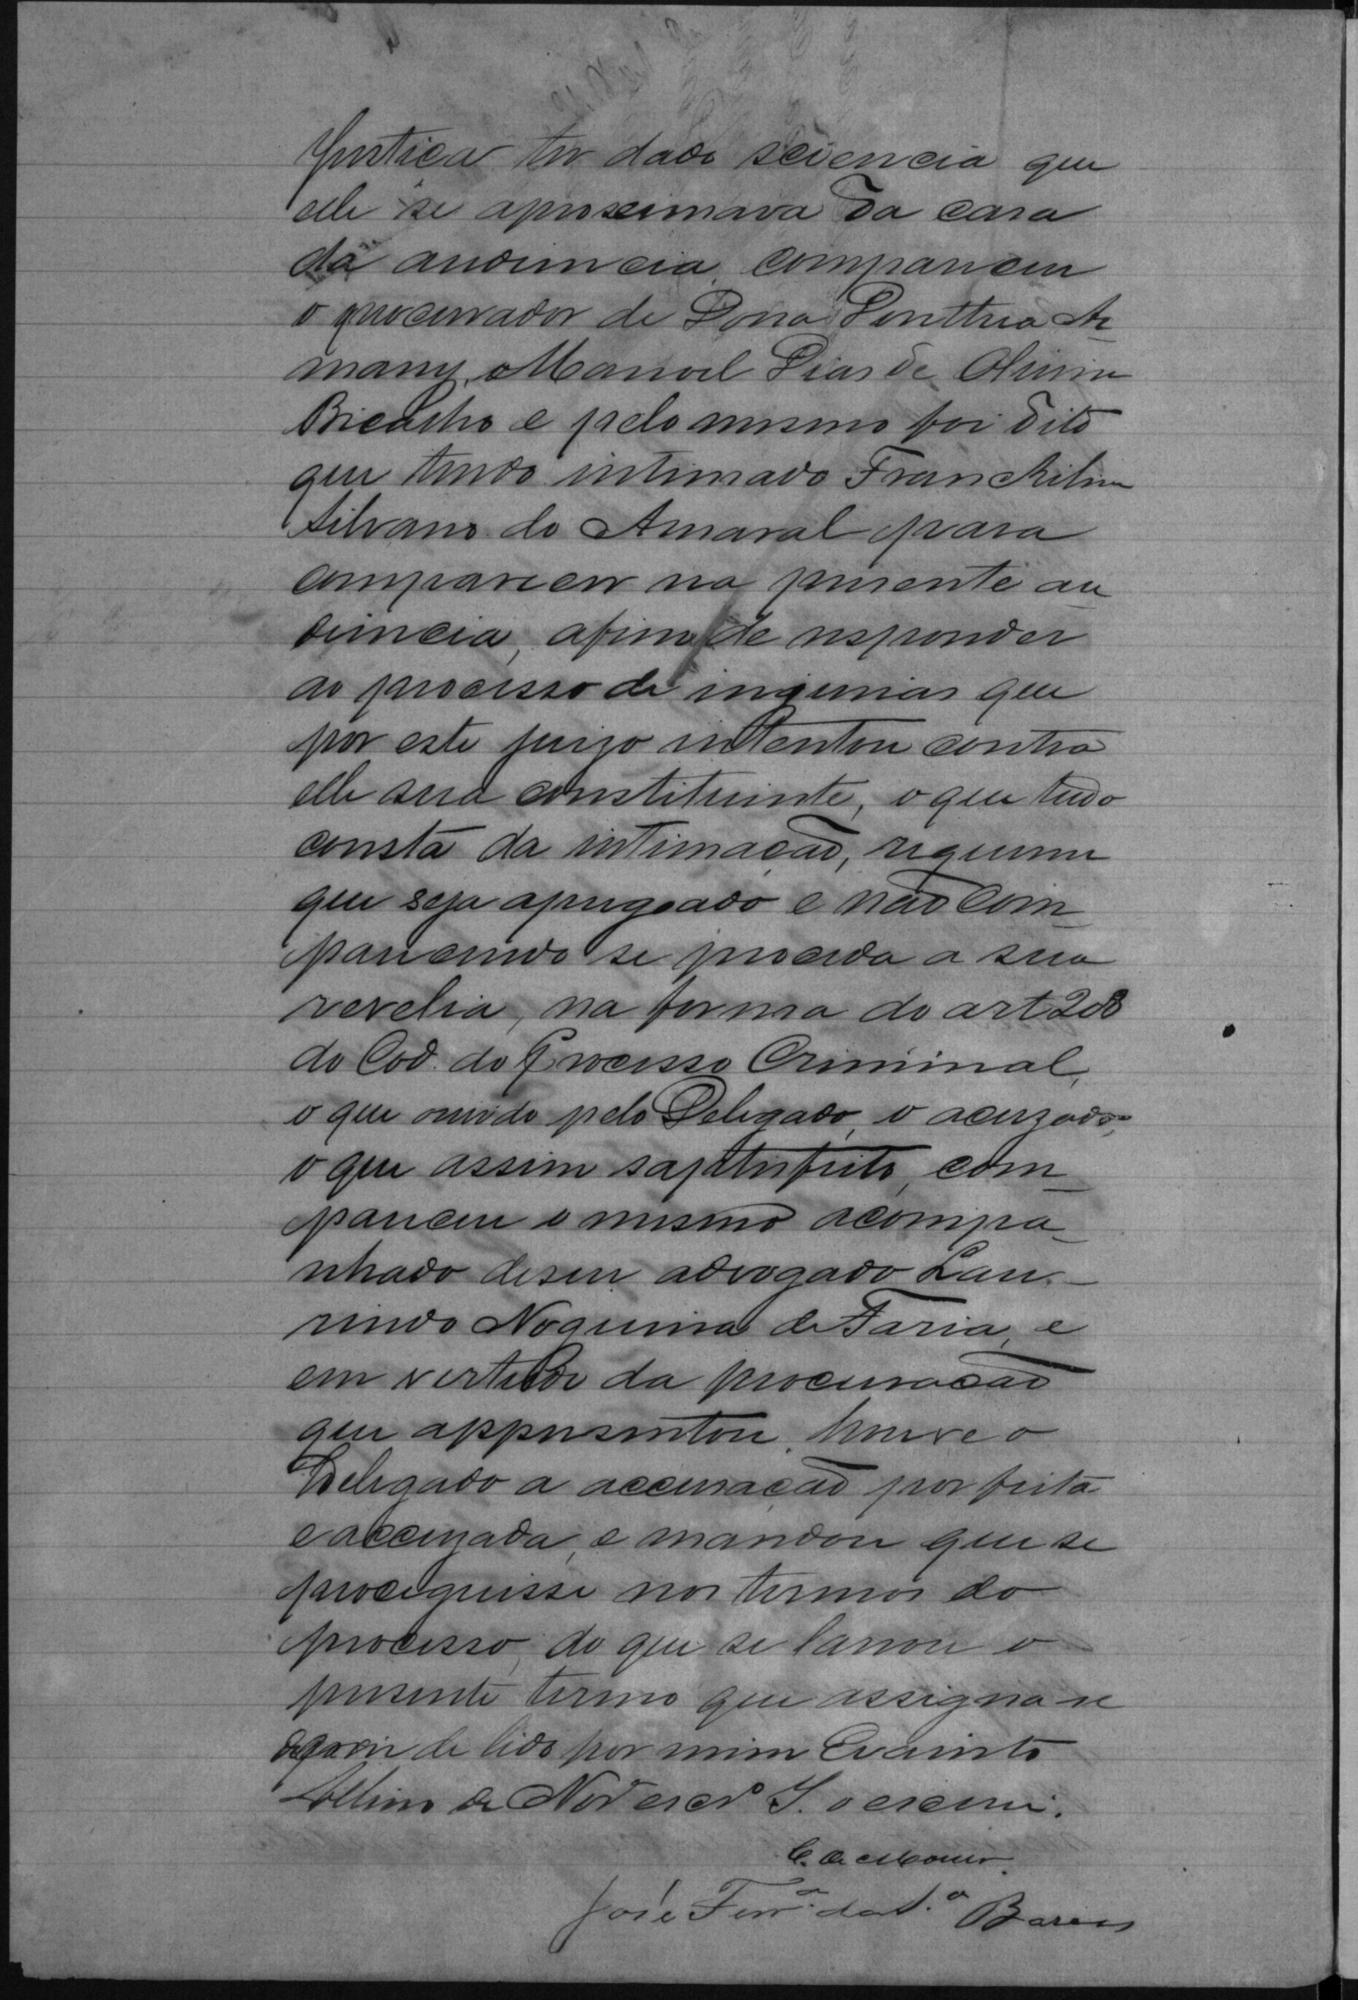 Justiça ter dado sciencia que
elle se aproximava da casa
da audiencia, compareceu
o procurador de Dona
many, Manoel Dias de Oliveira
Bicalho e pelo mesmo foi dito
que tendo intimado Franckilim
Silvano do Amaral para
comparecer na presente au
diencia, afim de responder
ao processo de injurias que
por este juizo intentou contra
elle sua constituinte, o que tudo
consta da intimação, requeria
que seja apregoado e não com
parecendo se proceda a sua
revelia, na forma do art 208
do Cod. do Processo Criminal,
o que ouvido pelo Delegado, o acuzado,
o que assim satisfeito, com
pareceu o mesmo acompa
nhado de seu advogado Lau
rindo Nogueira de Faria, e
em vertude da procuração
que appresentou. houve o
Delegado a accusação por feita
e accuzada, e mandou que se
proceguisse nos termos do
processo, do que se lavrou o
presente termo que assigna-se
depois de lido por mim Evaristo
de escr.º I. o escrevi.
José Ferr.ª da S.ª Barros